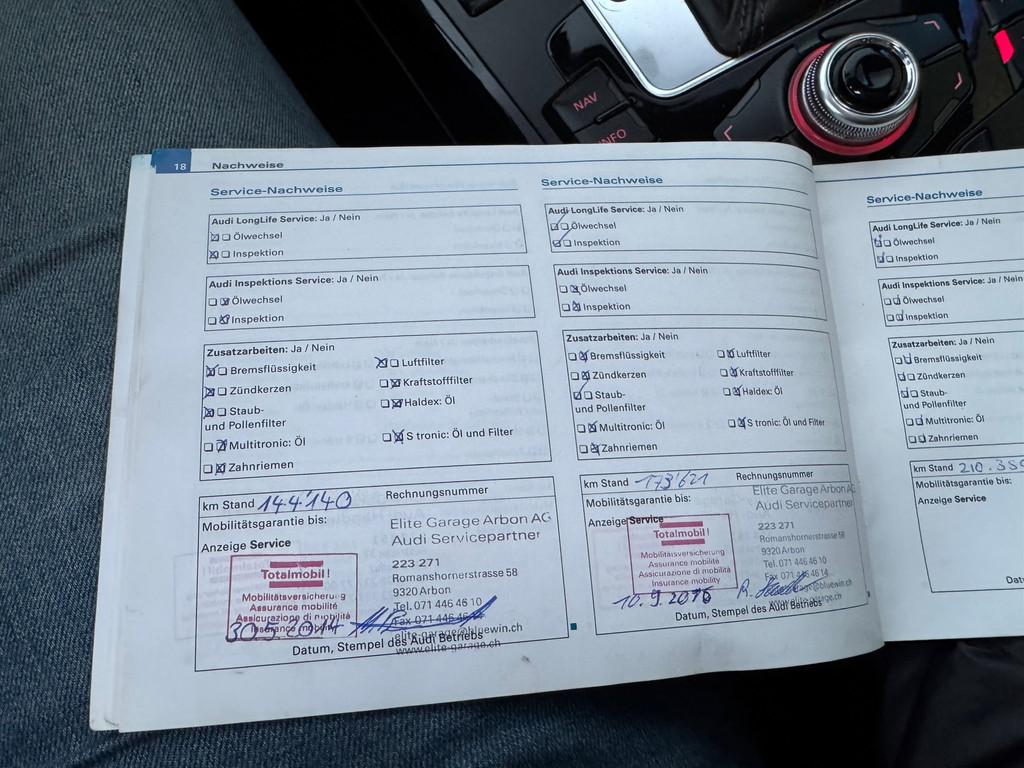 NAV
INFO
18 Nachweise
Service-Nachweise
Audi LongLife Service: Ja / Nein
Ölwechsel
Inspektion
Audi Inspektions Service: Ja / Nein
Ölwechsel
Inspektion
Zusatzarbeiten: Ja / Nein
Bremsflüssigkeit Luftfilter
Zündkerzen Kraftstofffilter
Staub- Haldex: Öl
und Pollenfilter
Multitronic: Öl S tronic: Öl und Filter
Zahnriemen
km Stand 144'140 Rechnungsnummer
Mobilitätsgarantie bis:
Anzeige Service
Elite Garage Arbon AG
Audi Servicepartner
223 271
Romanshornerstrasse 58
9320 Arbon
Tel. 071 446 46 10
Fax 071 446 46 14
elite-garage@bluewin.ch
www.elite-garage.ch
Totalmobil!
Mobilitätsversicherung
Assurance mobilité
Assicurazione di mobilità
Insurance mobility
30.5.2014
Datum, Stempel des Audi Betriebs
Service-Nachweise
Audi LongLife Service: Ja / Nein
Ölwechsel
Inspektion
Audi Inspektions Service: Ja / Nein
Ölwechsel
Inspektion
Zusatzarbeiten: Ja / Nein
Bremsflüssigkeit Luftfilter
Zündkerzen Kraftstofffilter
Staub- Haldex: Öl
und Pollenfilter
Multitronic: Öl S tronic: Öl und Filter
Zahnriemen
km Stand 173'621 Rechnungsnummer
Mobilitätsgarantie bis:
Anzeige Service
Elite Garage Arbon AG
Audi Servicepartner
223 271
Romanshornerstrasse 58
9320 Arbon
Tel. 071 446 46 10
Fax 071 446 46 14
elite-garage@bluewin.ch
www.elite-garage.ch
Totalmobil!
Mobilitätsversicherung
Assurance mobilité
Assicurazione di mobilità
Insurance mobility
10.9.2016 R.
Datum, Stempel des Audi Betriebs
Service-Nachweise
Audi LongLife Service: Ja / Nein
Ölwechsel
Inspektion
Audi Inspektions Service: Ja / Nein
Ölwechsel
Inspektion
Zusatzarbeiten: Ja / Nein
Bremsflüssigkeit
Zündkerzen
Staub-
und Pollenfilter
Multitronic: Öl
Zahnriemen
km Stand 210.38
Mobilitätsgarantie bis:
Anzeige Service